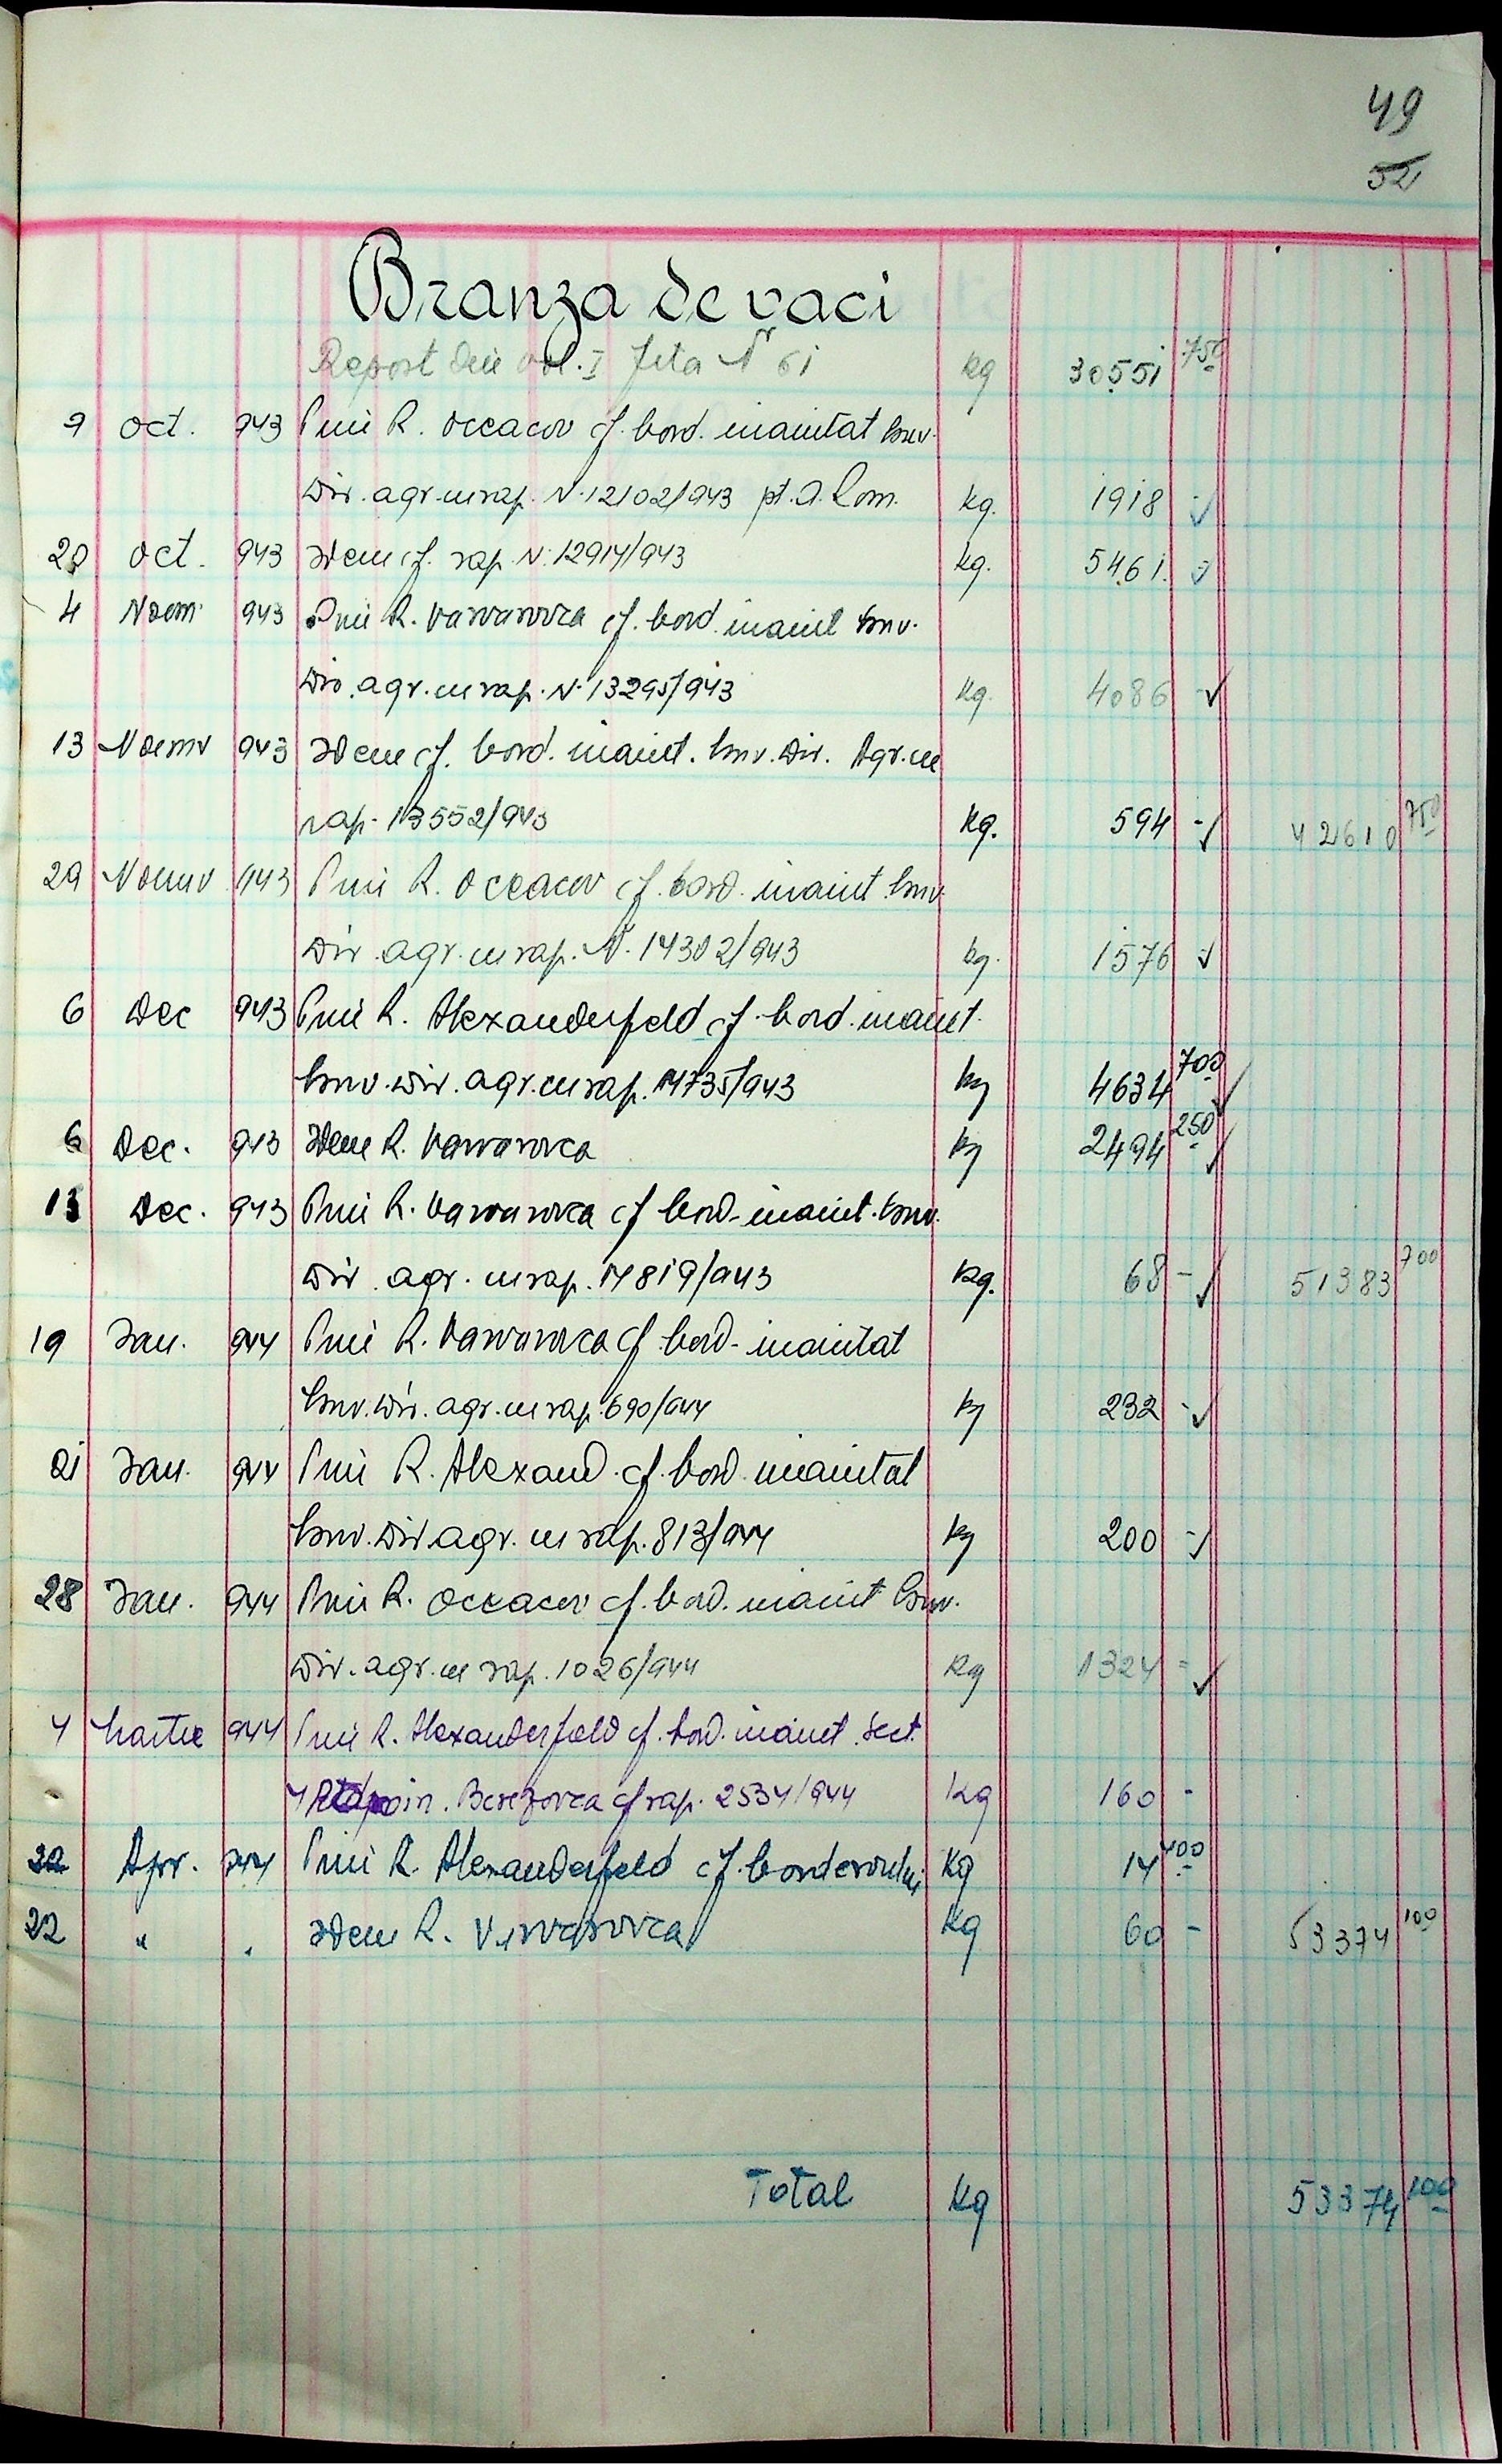 49
52
Branza de vaci
Report din vol. I fila Nr 61 kg 30551 750
9 Oct. 943 Prin R. Oceacov cf. bord. inaintat Guv.
Dir. agr. cu rap. N. 12102/943 pt. A. Rom. kg. 1918 -
20 Oct. 943 Idem cf. rap. N. 12914/943 kg. 5461. -
4 Noem 943 Prin R. Varvarovca cf. bord. inaint Guv.
Dir. agr. cu rap. N. 13295/943 kg. 4086 -
13 Noemv 943 Idem cf. bord. inaint. Guv. Dir. Agr. cu
rap. 13552/943 kg. 594 - 42610 750
29 Noemv 943 Prin R. Oceacov cf. bord. inaint Guv.
Dir. agr. cu rap. N. 14302/943 kg. 1576 -
6 Dec 943 Prin R. Alexanderfeld cf. bord. inaint.
Guv. Dir. agr. cu rap. 14735/943 kg 4634 700
6 Dec. 943 Idem R. Varvarovca kg 2494 250
13 Dec. 943 Prin R. Varvarovca cf bord. inaint. Guv.
Dir. agr. cu rap. 14819/943 kg. 68 - 51383 700
19 Ian. 944 Prin R. Varvarovca cf bord. inaintat
Guv. Dir. agr. cu rap. 690/944 kg 232 -
21 Ian. 944 Prin R. Alexand. cf. bord. inaintat
Guv. Dir agr. cu rap. 813/944 kg 200 -
28 Ian. 944 Prin R. Oceacov cf. bord. inaint Guv.
Dir. agr. cu rap. 1026/944 kg 1324 -
4 Martie 944 Prin R. Alexanderfeld cf. bord. inaint. Sect.
Berezovca cf rap. 2534/944 kg 160 -
22 Apr. 944 Prin R. Alexanderfeld cf. borderoului kg 14 400
22 " " Idem R. Varvarovca kg 60 - 53374 100
Total kg 53374 100